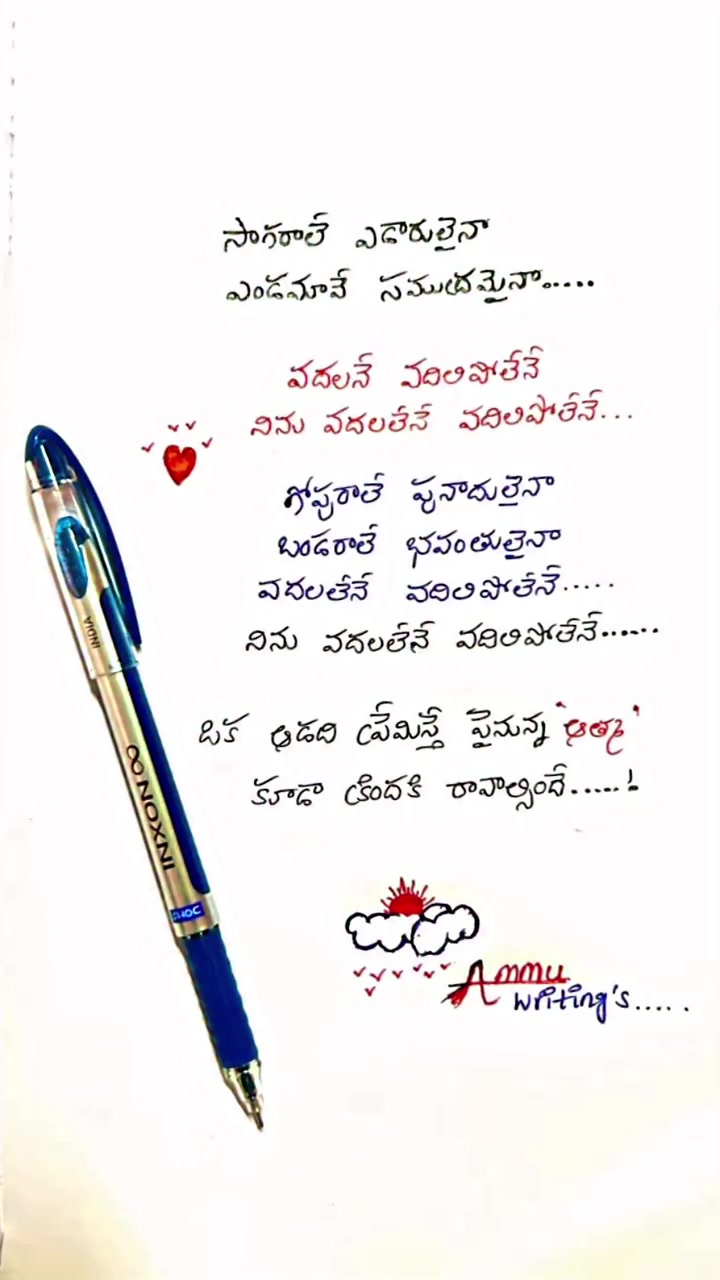 సాగరాలే ఎడారులైనా
ఎండమావే సముద్రమైనా.....
వదలనే వదిలిపోతేనే
నిను వదలలేనే వదిలిపోలేనే...
గోపురాలే పునాదులైనా
బండరాలే భవంతులైనా
వదలలేనే వదిలిపోలేనే.....
నిను వదలలేనే వదిలిపోలేనే......
ఒక ఆడది ప్రేమిస్తే పైనున్న 'ఆత్మ'
కూడా కిందకి రావాల్సిందే.....!
Ammu
writing's.....
INDIA
INXON8